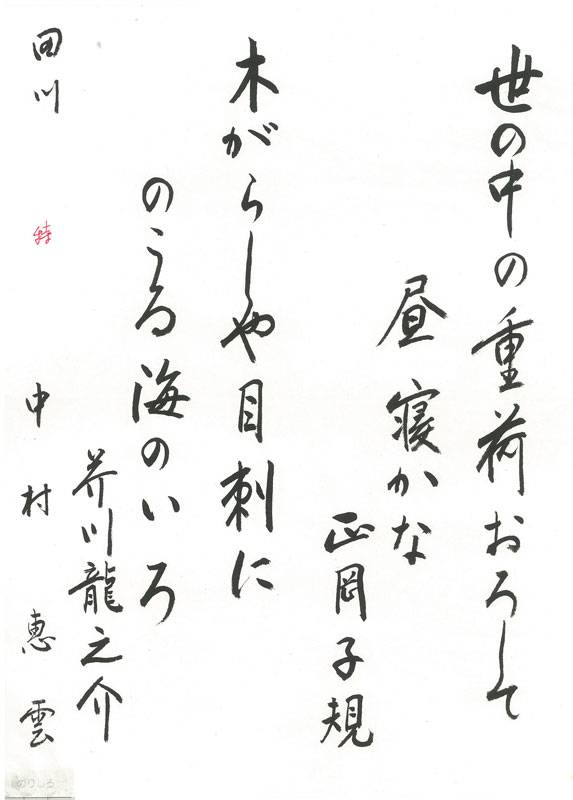 世の中の重荷おろして
昼寝かな
正岡子規
木がらしや目刺に
のこる海のいろ
芥川龍之介
田川 特 中村恵雲
のりしろ